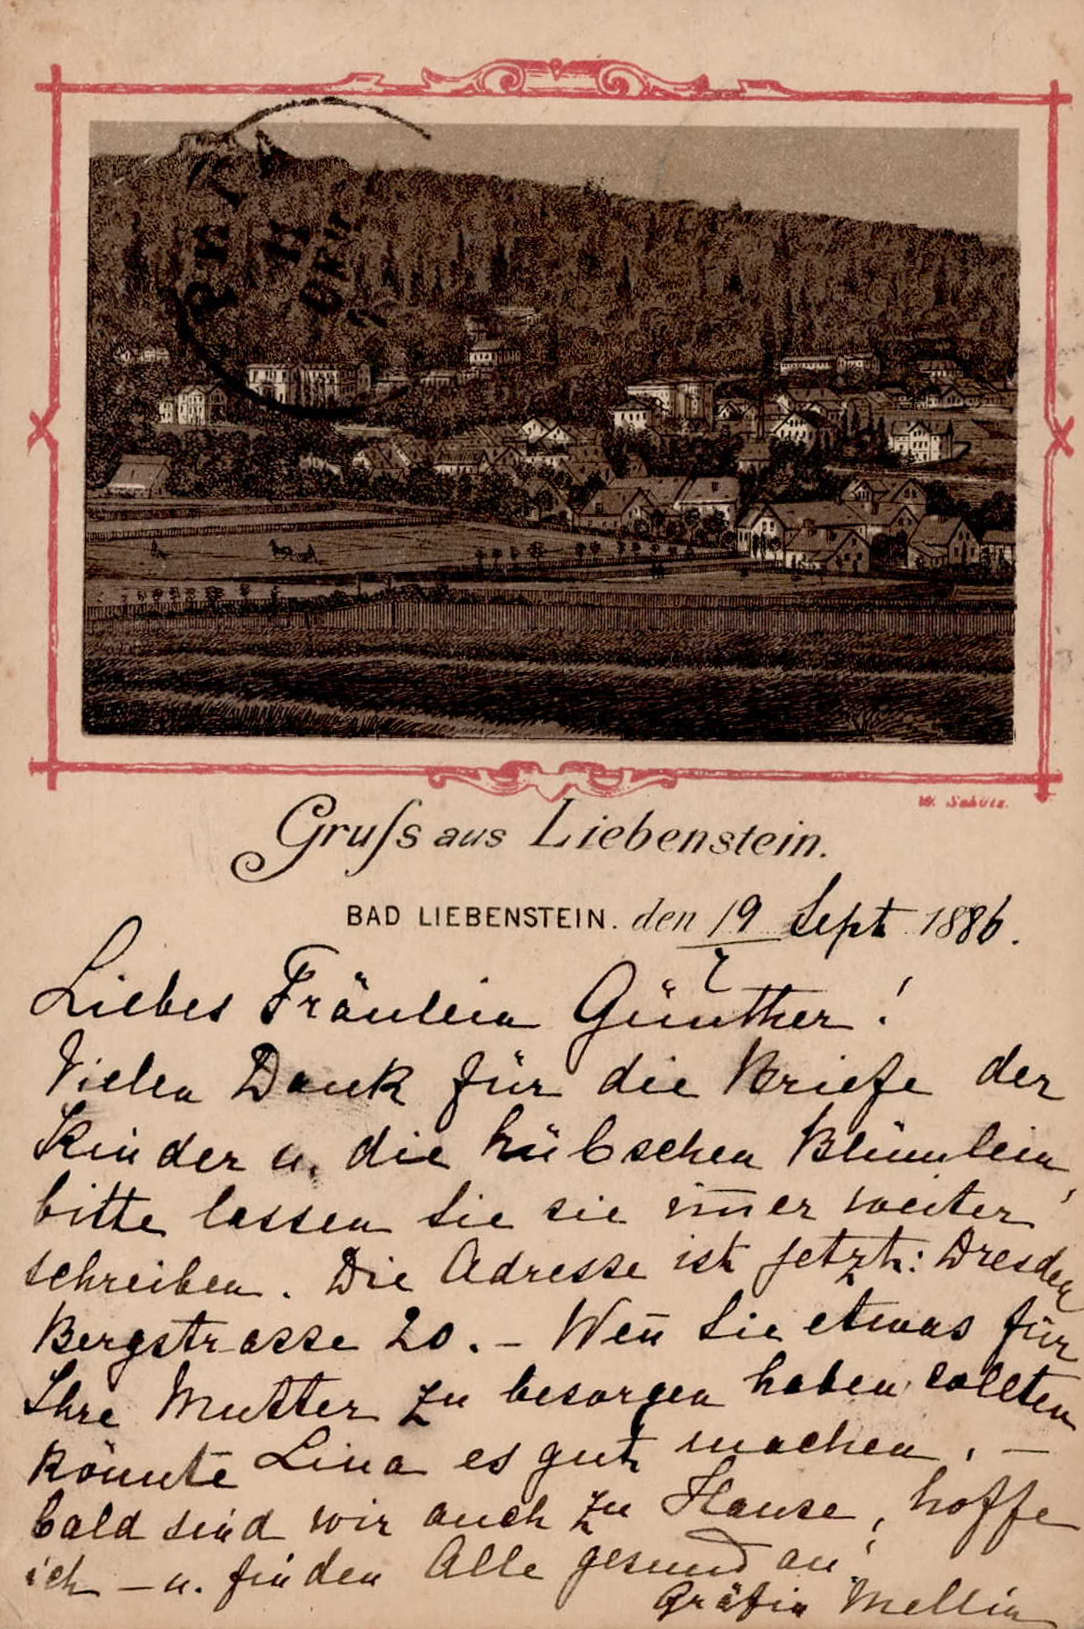 W. Schütz.
Gruss aus Liebenstein.
BAD LIEBENSTEIN. den 19 Sept 1886.
Liebes Fräulein Günther!
Vielen Dank für die Briefe der
Kinder u. die hübschen Blümlein,
bitte lassen Sie sie im̅er weiter
schreiben. Die Adresse ist jetzt: Dresden
Bergstrasse 20. – Wen̅ Sie etwas für
Ihre Mutter zu besorgen haben sollten
könnte Lina es gut machen. –
bald sind wir auch zu Hause, hoffe
ich – u. finden Alle gesund an!
Gräfin Mellin